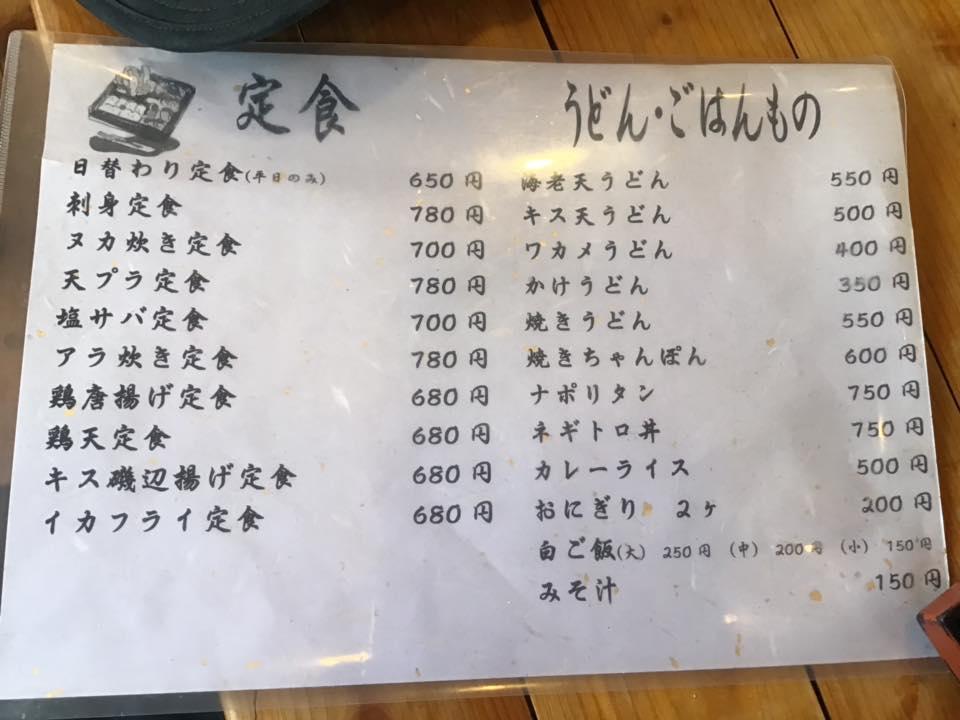 定食
日替わり定食(平日のみ) 650円
刺身定食 780円
ヌカ炊き定食 700円
天プラ定食 780円
塩サバ定食 700円
アラ炊き定食 780円
鶏唐揚げ定食 680円
鶏天定食 680円
キス磯辺揚げ定食 680円
イカフライ定食 680円
うどん・ごはんもの
海老天うどん 550円
キス天うどん 500円
ワカメうどん 400円
かけうどん 350円
焼きうどん 550円
焼きちゃんぽん 600円
ナポリタン 750円
ネギトロ丼 750円
カレーライス 500円
おにぎり 2ヶ 200円
白ご飯(大) 250円 (中) 200円 (小) 150円
みそ汁 150円